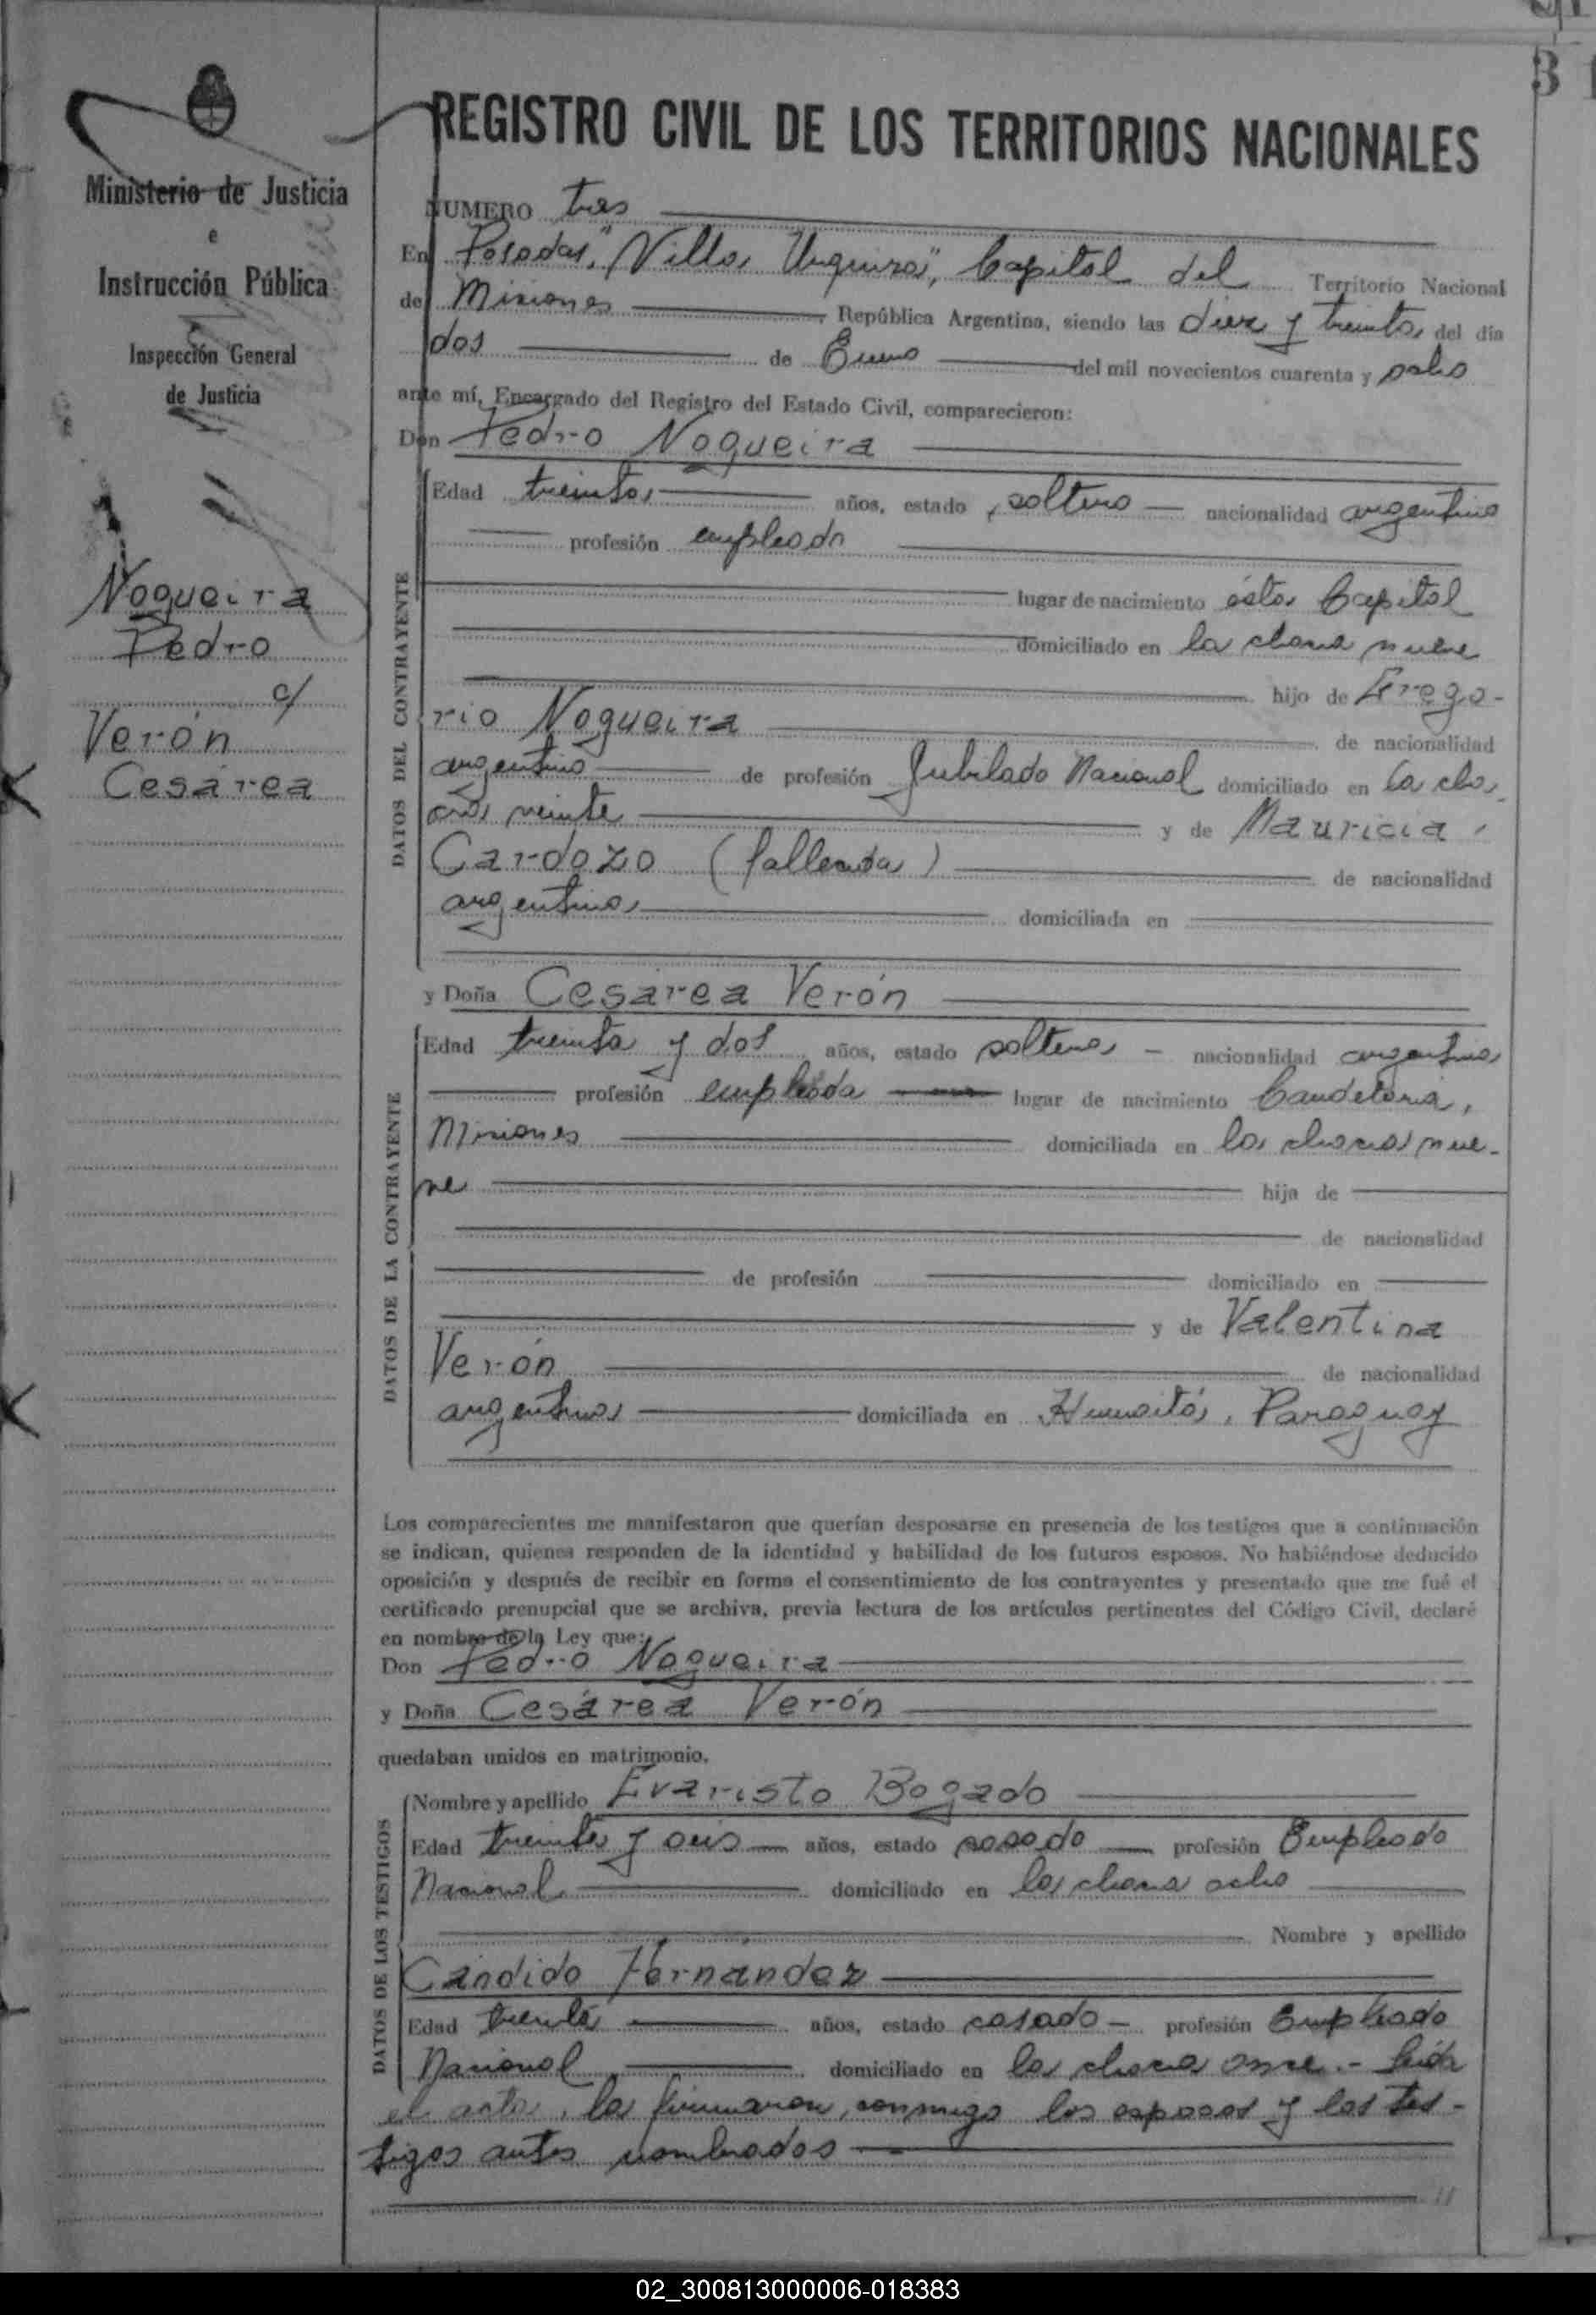 REGISTRO CIVIL DE LOS TERRITORIOS NACIONALES
Ministerio de Justicia
e
Instrucción Pública
Inspección General
de Justicia
Nogueira
Pedro
c/
Verón
Cesárea
NUMERO tres
En Posadas, "Villa Urquiza", Capital del Territorio Nacional
de Misiones República Argentina, siendo las diez y treinta del día
dos de Enero del mil novecientos cuarenta y ocho
ante mí, Encargado del Registro del Estado Civil, comparecieron:
Don Pedro Nogueira
DATOS DEL CONTRAYENTE
Edad treinta años, estado soltero nacionalidad argentino
profesión empleado
lugar de nacimiento ésta Capital
domiciliado en la chacra nueve
hijo de Grego-
rio Nogueira de nacionalidad
argentino de profesión Jubilado Nacional domiciliado en la cha-
cra veinte y de Mauricia
Cardozo (fallecida) de nacionalidad
argentina domiciliada en
y Doña Cesárea Verón
DATOS DE LA CONTRAYENTE
Edad treinta y dos años, estado soltera - nacionalidad argentina
profesión empleada lugar de nacimiento Candelaria,
Misiones domiciliada en la chacra nue-
ve hija de
de nacionalidad
de profesión domiciliado en
y de Valentina
Verón de nacionalidad
argentina domiciliada en Humaitá, Paraguay
Los comparecientes me manifestaron que querían desposarse en presencia de los testigos que a continuación
se indican, quienes responden de la identidad y habilidad de los futuros esposos. No habiéndose deducido
oposición y después de recibir en forma el consentimiento de los contrayentes y presentado que me fué el
certificado prenupcial que se archiva, previa lectura de los artículos pertinentes del Código Civil, declaré
en nombre de la Ley que:
Don Pedro Nogueira
y Doña Cesárea Verón
quedaban unidos en matrimonio.
DATOS DE LOS TESTIGOS
Nombre y apellido Evaristo Bogado
Edad treinta y seis años, estado casado profesión Empleado
Nacional domiciliado en la chacra ocho
Nombre y apellido
Cándido Fernández
Edad treinta años, estado casado - profesión Empleado
Nacional domiciliado en la chacra once.- Leída
el acta, la firmaron conmigo los esposos y los tes-
tigos antes nombrados
02_300813000006-018383